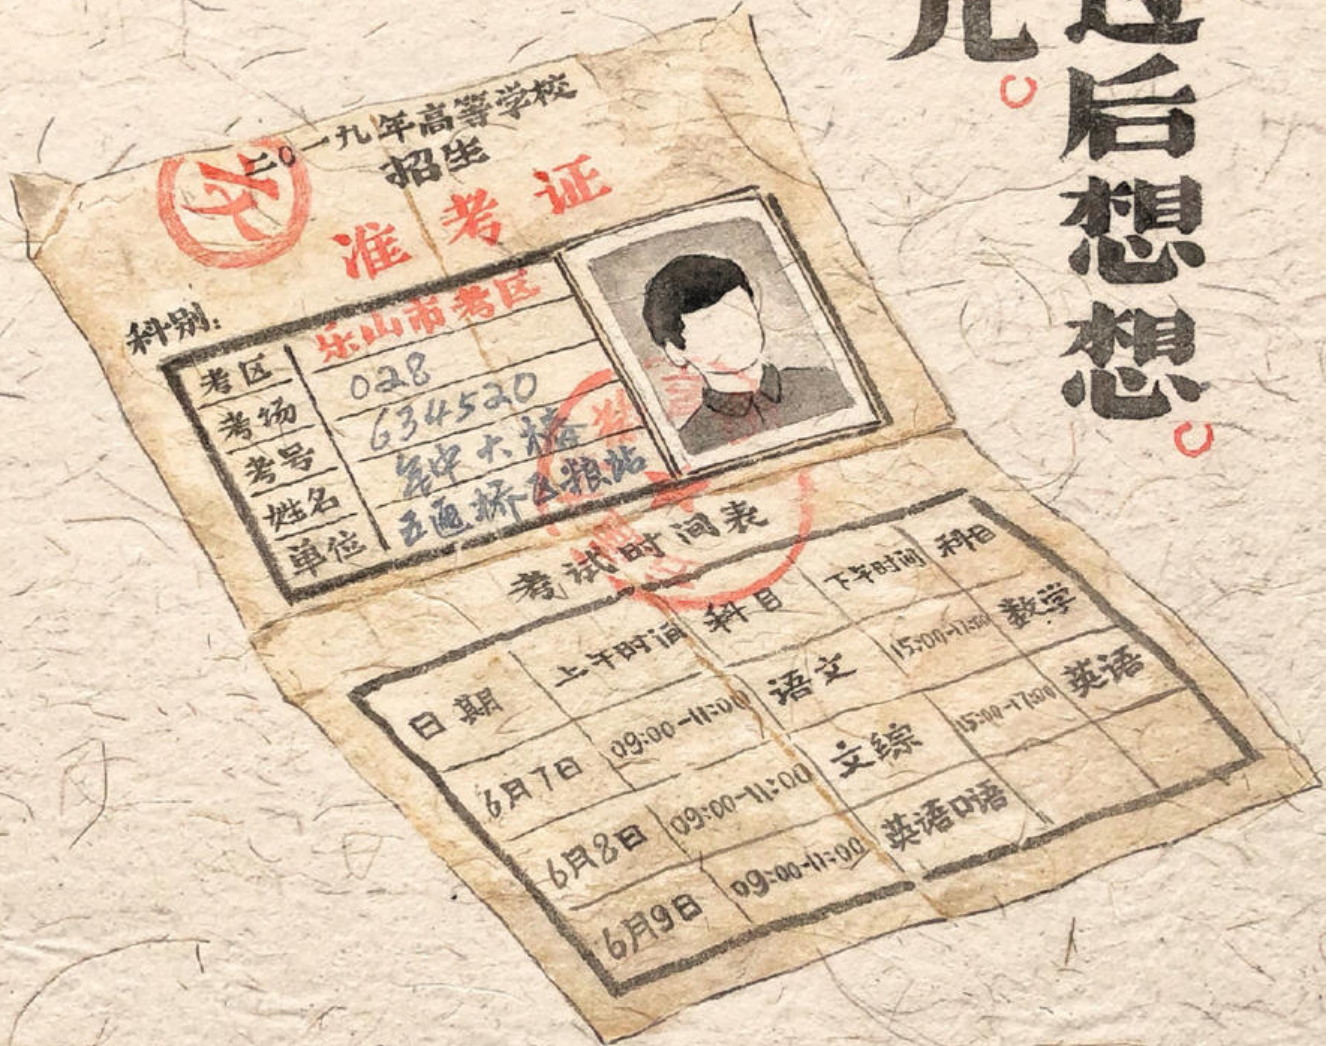 过后想想。
儿。
二〇一九年高等学校
招生
准考证
科别：
考区 乐山市考区
考场 028
考号 634520
姓名
单位 五通桥区粮站
考试时间表
日期 上午时间 科目 下午时间 科目
6月7日 09:00-11:00 语文 15:00-17:00 数学
6月8日 09:00-11:00 文综 15:00-17:00 英语
6月9日 09:00-11:00 英语口语